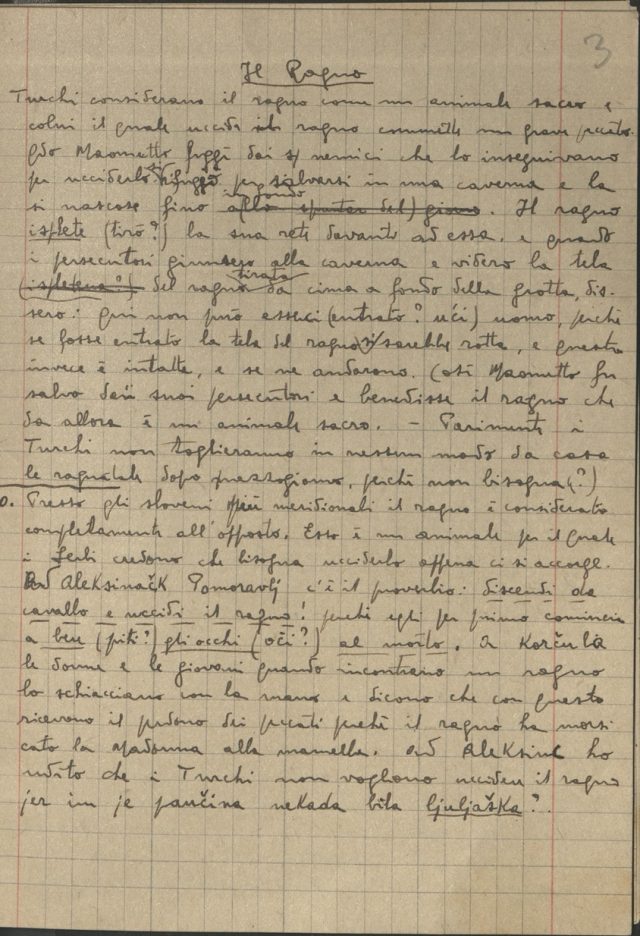 3
Il Ragno
Turchi considerano il ragno come un animale sacro e
colui il quale uccide il ragno commette un grave peccato.
Qdo Maometto fuggì dai nemici che lo inseguivano
per ucciderlo si rifuggiò per salvarsi in una caverna e la
si nascose fino in fondo allo spuntar del giorno. Il ragno
isplete (tirò?) la sua rete davanti ad essa, e quando
i persecutori giunsero alla caverna e videro la tela
(ispletena?) del ragno tirata da cima a fondo della grotta, dis-
sero: qui non può esserci (entrato? ući) uomo, perchè
se fosse entrato la tela del ragno si sarebbe rotta, e questa
invece è intatta, e se ne andarono. Così Maometto fu
salvo dai suoi persecutori e benedisse il ragno che
da allora è un animale sacro. – Parimenti i
Turchi non toglieranno in nessun modo da casa
le ragnatele dopo mezzogiorno, perchè non bisogna (?)
o. Presso gli sloveni più meridionali il ragno è considerato
completamente all'opposto. Esso è un animale per il quale
i Serbi credono che bisogna ucciderlo appena ci si accorge.
Ad Aleksinačk Pomoravlj c'è il proverbio: discendi da
cavallo e uccidi il ragno! perchè egli per primo comincia
a bere (piti?) gli occhi (oči?) al morto. A Korčula
le donne e le giovani quando incontrano un ragno
lo schiacciano con la mano e dicono che con questo
ricevono il perdono dei peccati perchè il ragno ha morsi
cato la Madonna alla mamella. Ad Aleksinc ho
udito che i Turchi non vogliono uccidere il ragno
jer im je paučina nekada bila ljuljaška?.